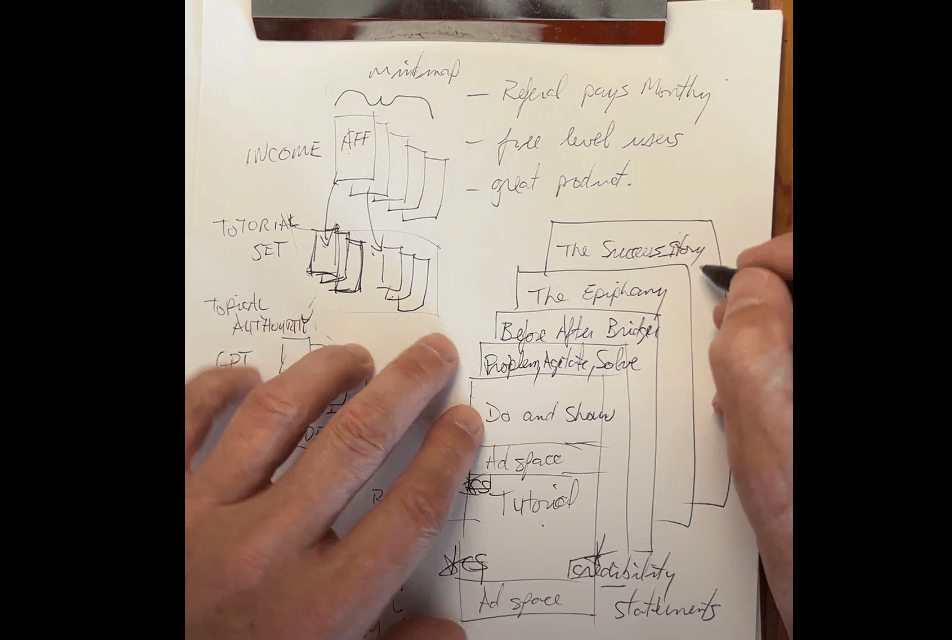 mintmap
INCOME
AFF
- Referal pays Monthly
- free level users
- great product.
TUTORIAL
SET
TOPICAL
AUTHORITY
GPT
The Success Story
The Epiphany
Before After Bridge
Problem, Agitate, Solve
Do and Show
Ad space
Tutorial
CS
credibility
statements
Ad space